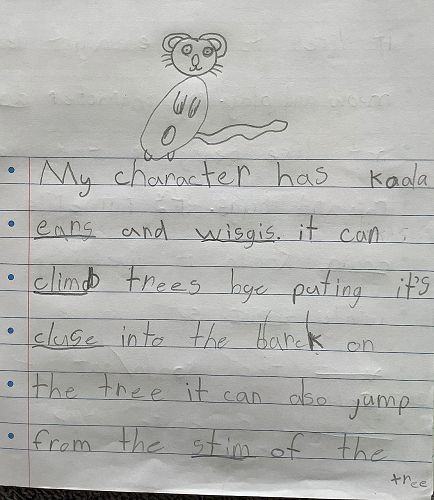 My character has kaala
ears and wisgis. it can
climb trees bye puting it's
cluse into the barck on
the tree it can also jump
from the stim of the
tree